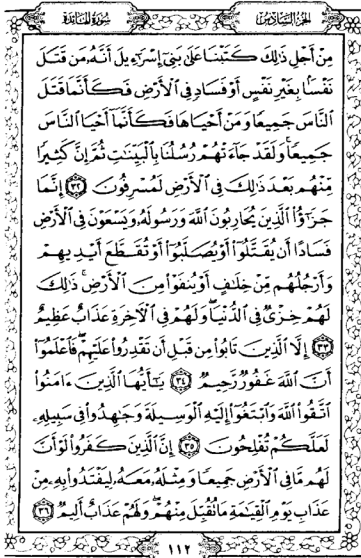 سورة المائدة
الجزء السادس
مِنْ أَجْلِ ذَٰلِكَ كَتَبْنَا عَلَىٰ بَنِىٓ إِسْرَٰٓءِيلَ أَنَّهُۥ مَن قَتَلَ
نَفْسًۢا بِغَيْرِ نَفْسٍ أَوْ فَسَادٍ فِى ٱلْأَرْضِ فَكَأَنَّمَا قَتَلَ
ٱلنَّاسَ جَمِيعًا وَمَنْ أَحْيَاهَا فَكَأَنَّمَآ أَحْيَا ٱلنَّاسَ
جَمِيعًا ۚ وَلَقَدْ جَآءَتْهُمْ رُسُلُنَا بِٱلْبَيِّنَٰتِ ثُمَّ إِنَّ كَثِيرًا
مِّنْهُم بَعْدَ ذَٰلِكَ فِى ٱلْأَرْضِ لَمُسْرِفُونَ ٣٢ إِنَّمَا
جَزَٰٓؤُا۟ ٱلَّذِينَ يُحَارِبُونَ ٱللَّهَ وَرَسُولَهُۥ وَيَسْعَوْنَ فِى ٱلْأَرْضِ
فَسَادًا أَن يُقَتَّلُوٓا۟ أَوْ يُصَلَّبُوٓا۟ أَوْ تُقَطَّعَ أَيْدِيهِمْ
وَأَرْجُلُهُم مِّنْ خِلَٰفٍ أَوْ يُنفَوْا۟ مِنَ ٱلْأَرْضِ ۚ ذَٰلِكَ
لَهُمْ خِزْىٌ فِى ٱلدُّنْيَا ۖ وَلَهُمْ فِى ٱلْءَاخِرَةِ عَذَابٌ عَظِيمٌ
٣٣ إِلَّا ٱلَّذِينَ تَابُوا۟ مِن قَبْلِ أَن تَقْدِرُوا۟ عَلَيْهِمْ ۖ فَٱعْلَمُوٓا۟
أَنَّ ٱللَّهَ غَفُورٌ رَّحِيمٌ ٣٤ يَٰٓأَيُّهَا ٱلَّذِينَ ءَامَنُوا۟
ٱتَّقُوا۟ ٱللَّهَ وَٱبْتَغُوٓا۟ إِلَيْهِ ٱلْوَسِيلَةَ وَجَٰهِدُوا۟ فِى سَبِيلِهِۦ
لَعَلَّكُمْ تُفْلِحُونَ ٣٥ إِنَّ ٱلَّذِينَ كَفَرُوا۟ لَوْ أَنَّ
لَهُم مَّا فِى ٱلْأَرْضِ جَمِيعًا وَمِثْلَهُۥ مَعَهُۥ لِيَفْتَدُوا۟ بِهِۦ مِنْ
عَذَابِ يَوْمِ ٱلْقِيَٰمَةِ مَا تُقُبِّلَ مِنْهُمْ ۖ وَلَهُمْ عَذَابٌ أَلِيمٌ ٣٦
١١٢